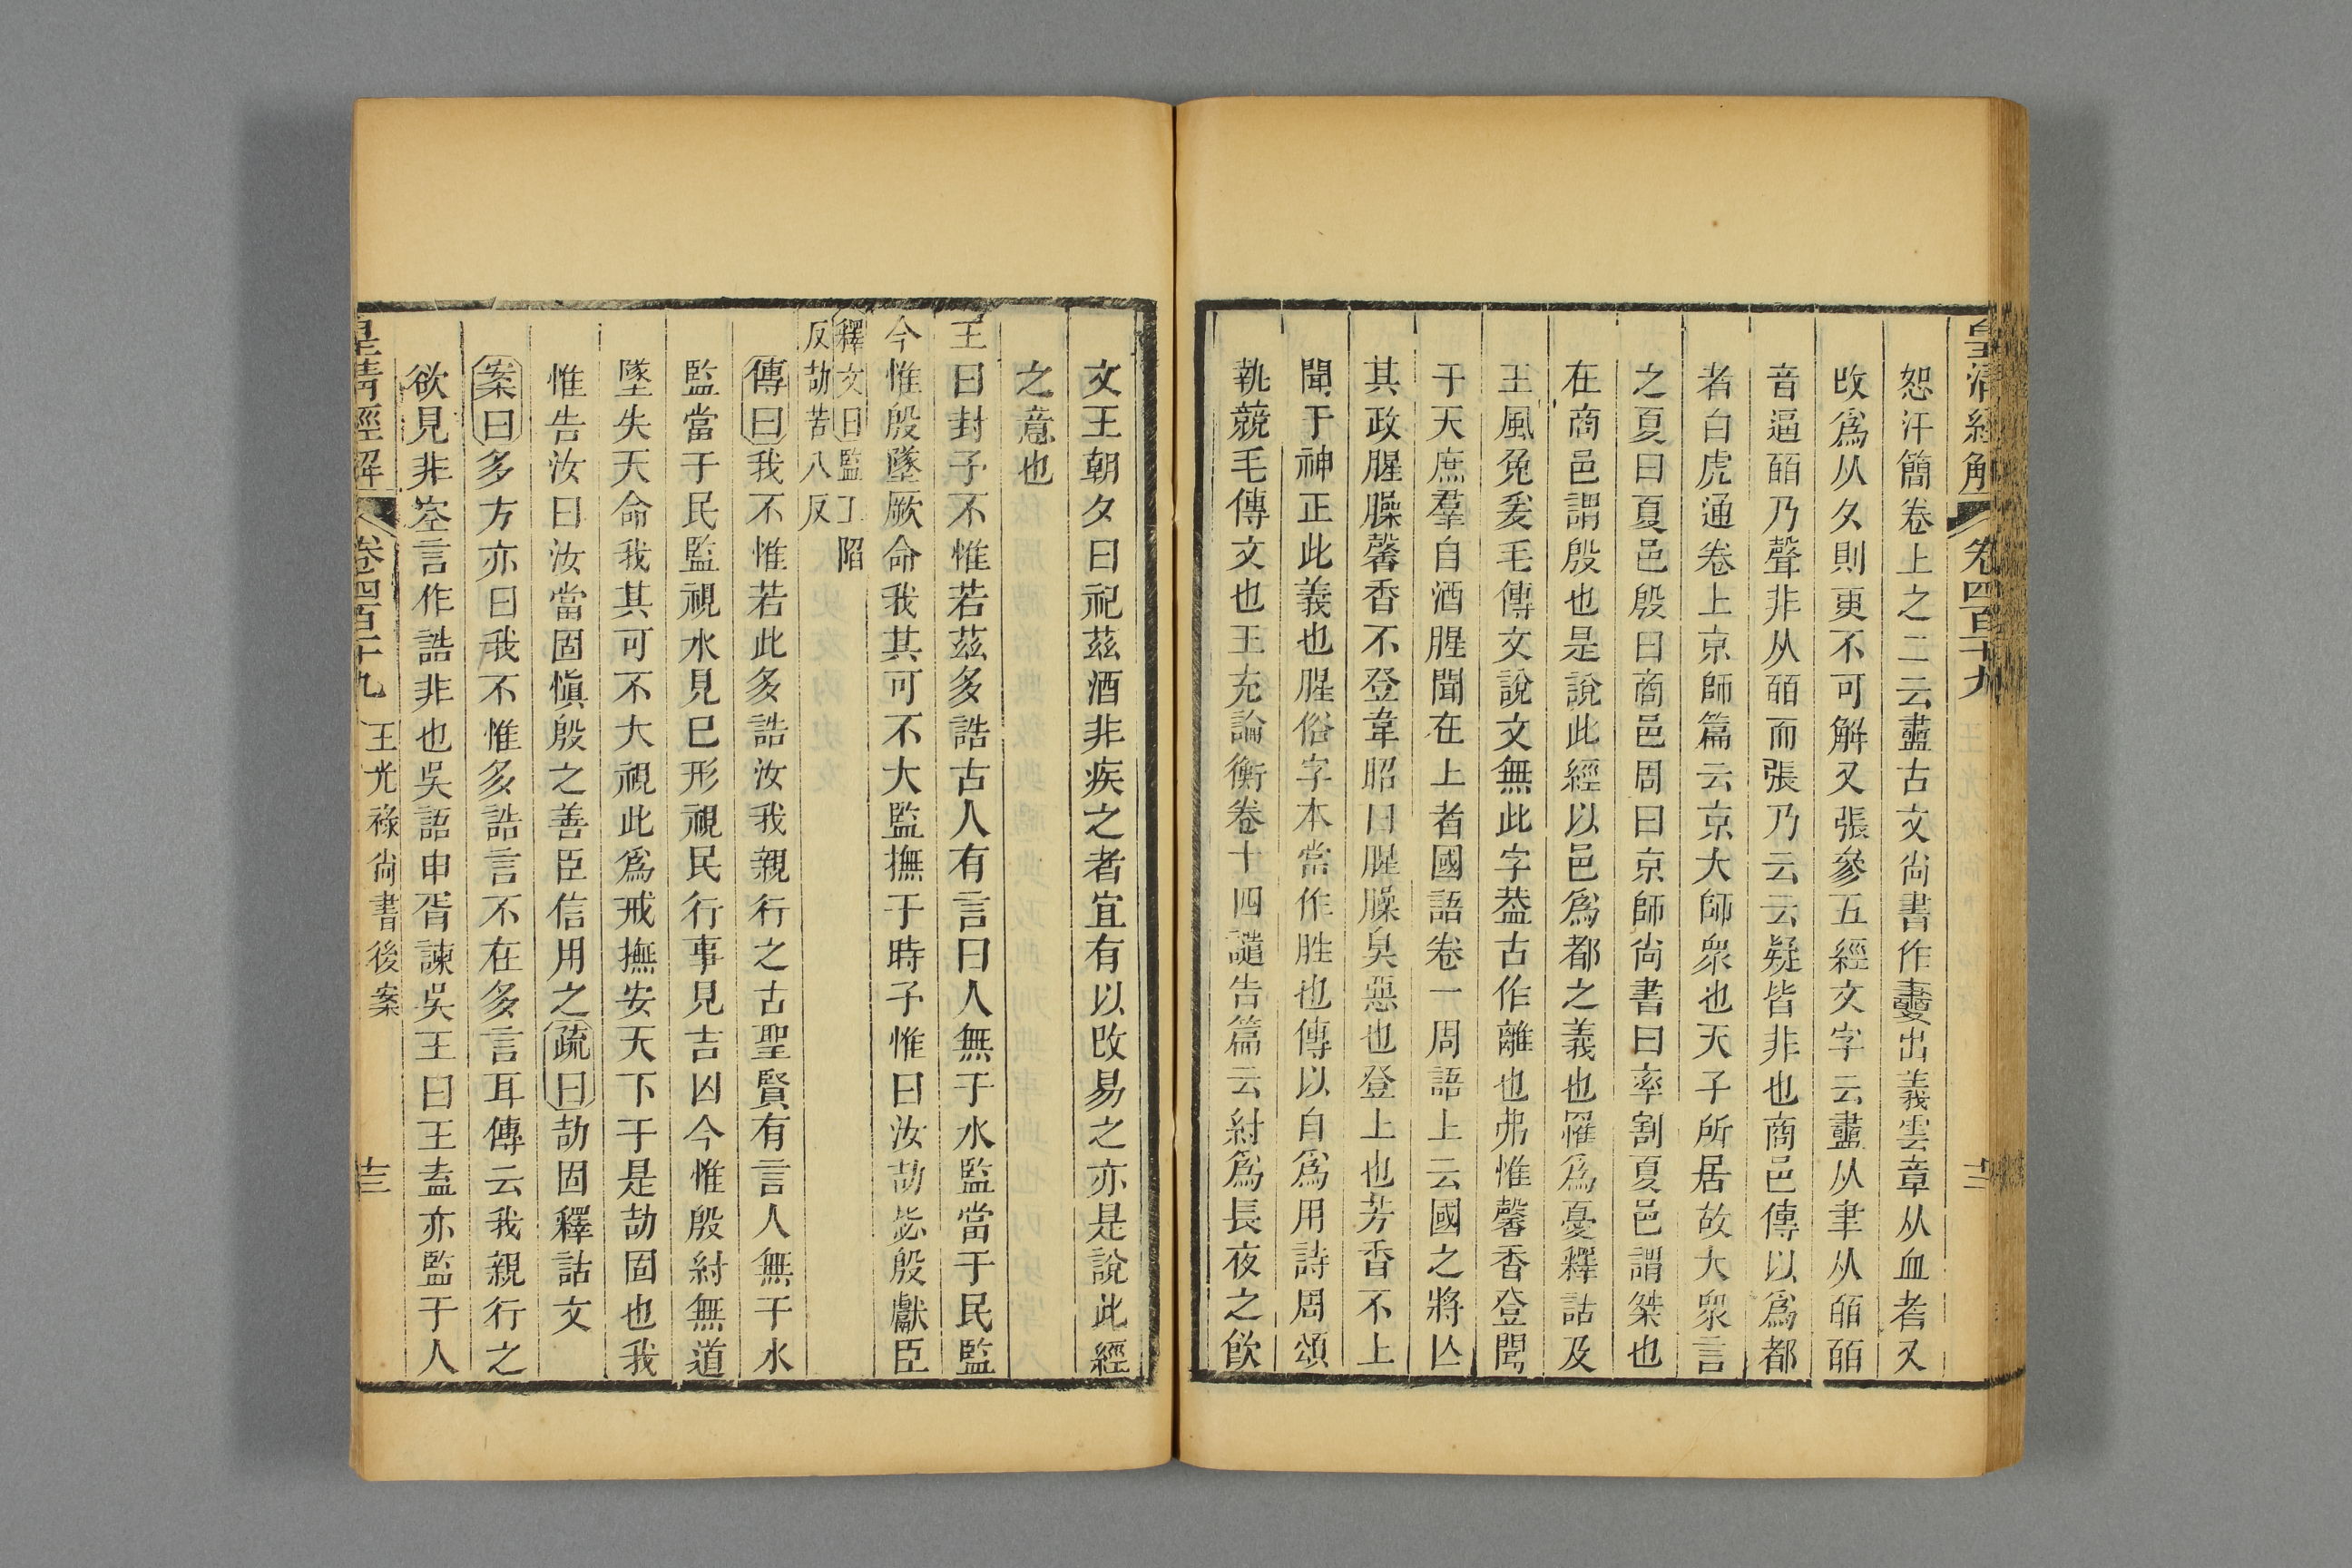 皇清經解 卷四百十九 十二
恕汗簡卷上之二云衋古文尚書作𧗓出義雲章从血者又
改爲从夂則更不可解又張參五經文字云衋从聿从皕皕
音逼皕乃聲非从皕而張乃云云疑皆非也商邑傳以爲都
者白虎通卷上京師篇云京大師衆也天子所居故大衆言
之夏曰夏邑殷曰商邑周曰京師尚書曰率割夏邑謂桀也
在商邑謂殷也是說此經以邑爲都之義也罹爲憂釋詁及
王風兔爰毛傳文說文無此字葢古作離也弗惟馨香登聞
于天庶羣自酒腥聞在上者國語卷一周語上云國之將亾
其政腥臊馨香不登韋昭曰腥臊臭惡也登上也芳香不上
聞于神正此義也腥俗字本當作胜也傳以自爲用詩周頌
執競毛傳文也王充論衡卷十四譴告篇云紂爲長夜之飮
文王朝夕曰祀茲酒非疾之者宜有以改易之亦是說此經
之意也
王曰封予不惟若茲多誥古人有言曰人無于水監當于民監
今惟殷墜厥命我其可不大監撫于時予惟曰汝劼毖殷獻臣
釋文曰監工陷
反劼苦八反
傳曰我不惟若此多誥汝我親行之古聖賢有言人無于水
監當于民監視水見巳形視民行事見吉凶今惟殷紂無道
墜失天命我其可不大視此爲戒撫安天下于是劼固也我
惟告汝曰汝當固愼殷之善臣信用之疏曰劼固釋詁文
案曰多方亦曰我不惟多誥言不在多言耳傳云我親行之
欲見非空言作誥非也吳語申胥諫吳王曰王盍亦監于人
皇清經解 卷四百十九 王光祿尚書後案 十三